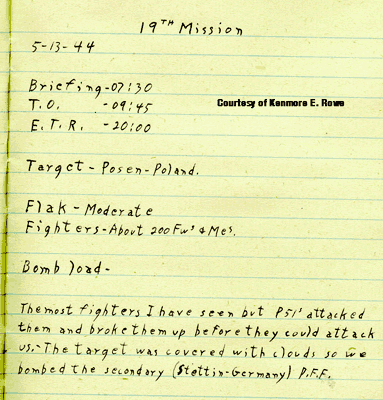 19TH Mission
5-13-44
Briefing-07:30
T.O. -09:45
Courtesy of Kenmore E. Rowe
E.T.R. -20:00
Target-Posen-Poland.
Flak-Moderate
Fighters-About 200 Fws & Mes.
Bomb load-
The most fighters I have seen but P51s attacked
them and broke them up before they could attack
us.-The target was covered with clouds so we
bombed the secondary (Stettin-Germany) P.F.F.